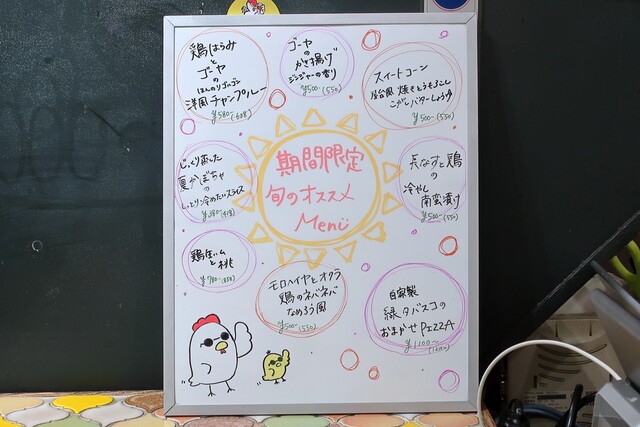 期間限定
旬のオススメ
Menu
鶏はらみ
と
ゴーヤ
の
ほんのりゴルゴン
洋風チャンプルー
¥580-(638)
ゴーヤ
の
かき揚げ
ジンジャーの香り
¥500-(550)
スイートコーン
屋台風 焼きとうもろこし
こがしバターしょうゆ
¥500-(550)
じっくり蒸した
夏かぼちゃ
の
しっとり冷めたいスライス
¥380-(418)
長なすと鶏
の
冷やし
南蛮漬け
¥500-(550)
鶏生ハム
と桃
モロヘイヤとオクラ
鶏のネバネバ
なめろう風
¥500-(550)
自家製
緑タバスコの
おまかせPIZZA
¥1100-